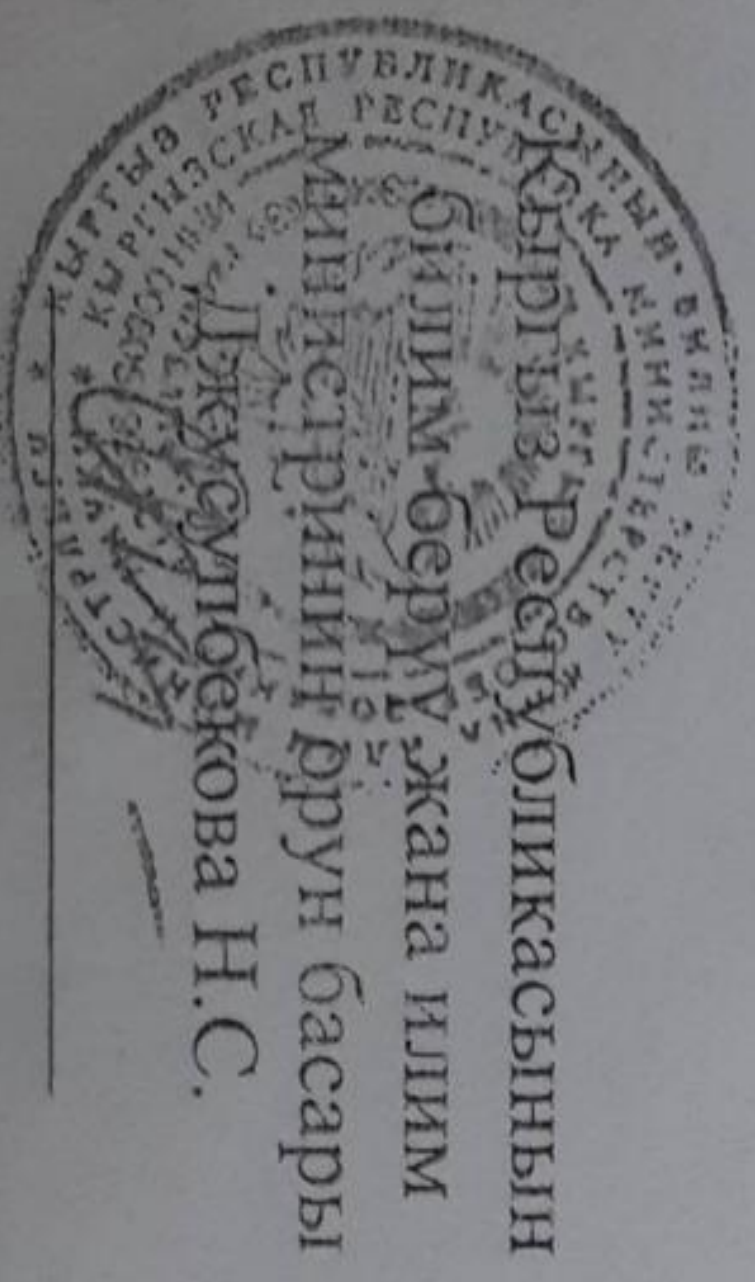 Кыргыз Республикасынын
билим берүү жана илим
министринин орун басары
Джусупбекова Н.С.
КЫРГЫЗ РЕСПУБЛИКАСЫНЫН БИЛИМ БЕРҮҮ
КЫРГЫЗСКАЯ РЕСПУБЛИКА МИНИСТЕРСТВО